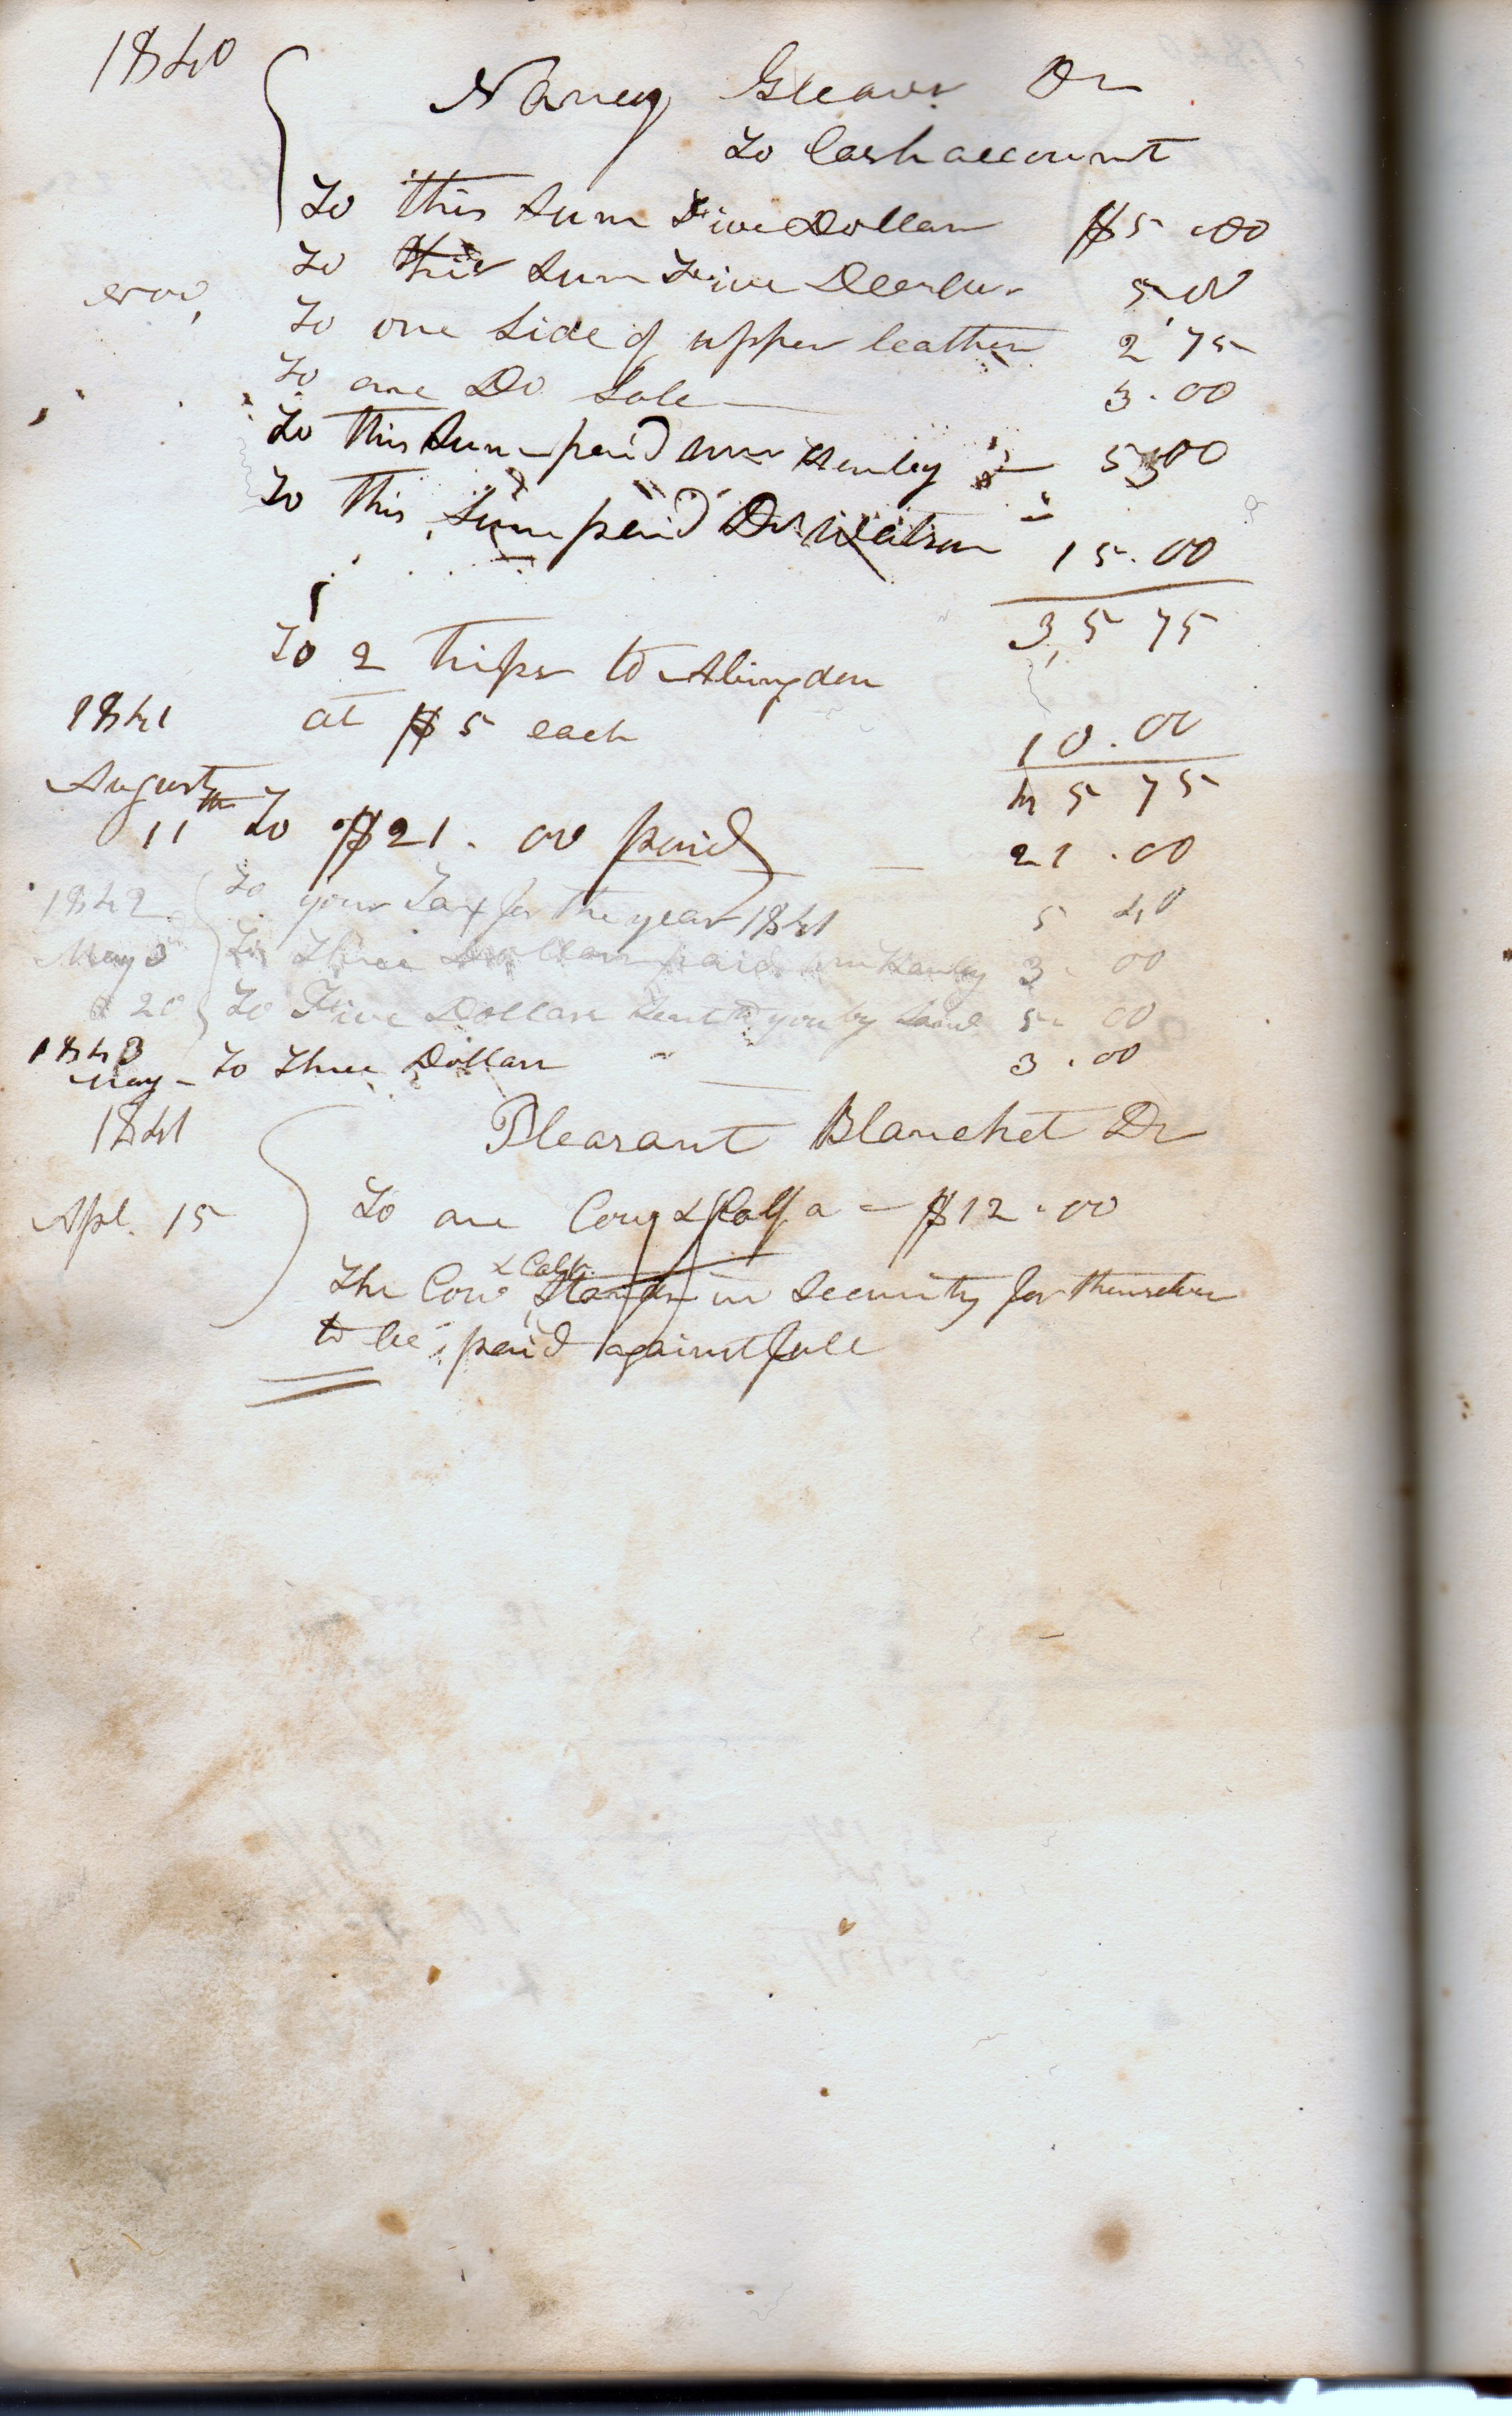 1840
Nancy Gleavs Dr
To Cash account
To this Sum Five Dollars $5.00
Nov, To this Sum Five Dollars 5.00
To one Side of upper leather 2 75
To one Do Sole 3.00
To this Sum paid Henley 5.00
To this Sum paid Dr Watson 15.00
35 75
To 2 trips to Abingdon
1841 at $5 each 10.00
45 75
August 11th To $21.00 paid 21.00
1842 To your Tax for the year 1841 5 40
May 3 To Three Dollars paid Henley 3.00
20 To Five Dollars Sent to you by 5.00
1843
May - To Three Dollars 3.00
1841 Pleasant Blanchet Dr
Apl. 15 To one Cow & Calf a = $12.00
The Cow & Calf Stands in Security for themselves
to be paid against fall